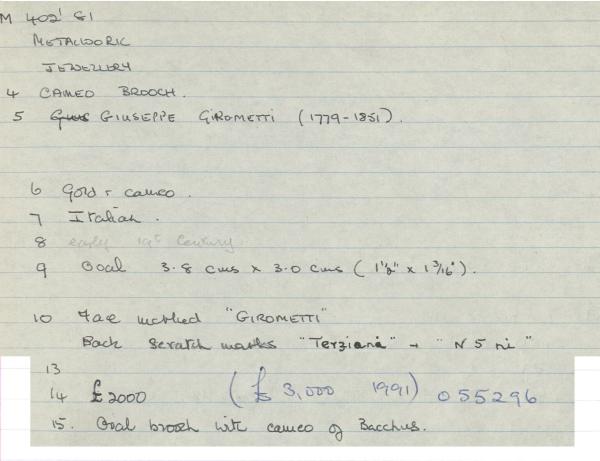 M 402' 81
METALWORK
JEWELLERY
4 CAMEO BROOCH.
5 GIUSEPPE GIROMETTI (1779-1851).
6 Gold + cameo.
7 Italian.
8 early 19th Century
9 Oval 3.8 cms x 3.0 cms (1½" x 1 3/16").
10 Face marked "GIROMETTI"
Back Scratch marks "Terziana" + "N 5 ni"
13
14 £2000 (£3,000 1991) 055296
15. Oval brooch with cameo of Bacchus.